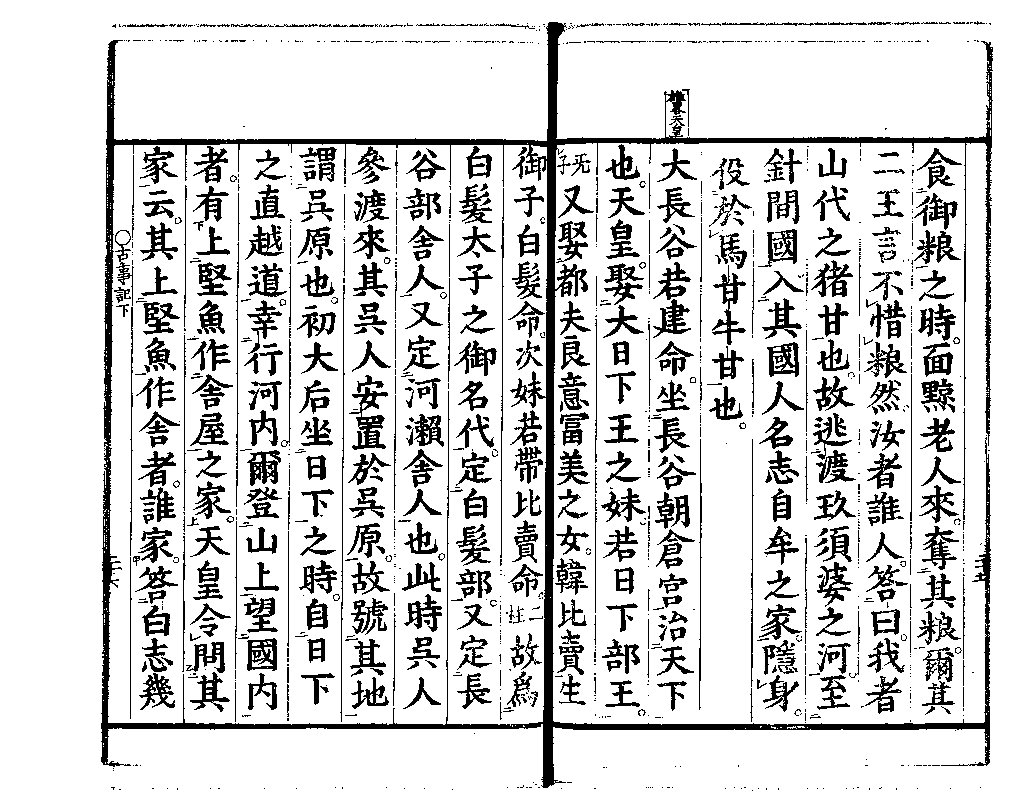 食御粮之時。面黥老人來。奪其粮。爾其
二王言不惜粮然汝者誰人。答曰。我者
山代之猪甘也。故逃渡玖須婆之河。至
針間國入其國人名志自牟之家。隱身。
役於馬甘牛甘也。
雄略天皇
大長谷若建命。坐長谷朝倉宮治天下
也。天皇。娶大日下王之妹。若日下部王。
无子
又娶都夫良意富美之女。韓比賣生
御子。白髮命。次妹若帶比賣命。二柱故爲
白髮太子之御名代。定白髮部。又定長
谷部舍人。又定河瀬舍人也。此時呉人
參渡來。其呉人安置於呉原。故號其地
謂呉原也。初大后坐日下之時。自日下
之直越道。幸行河内。爾登山上望國内
者。有上堅魚作舍屋之家。天皇令問其
家云。其上堅魚作舍者。誰家。答白志幾
○古事記下